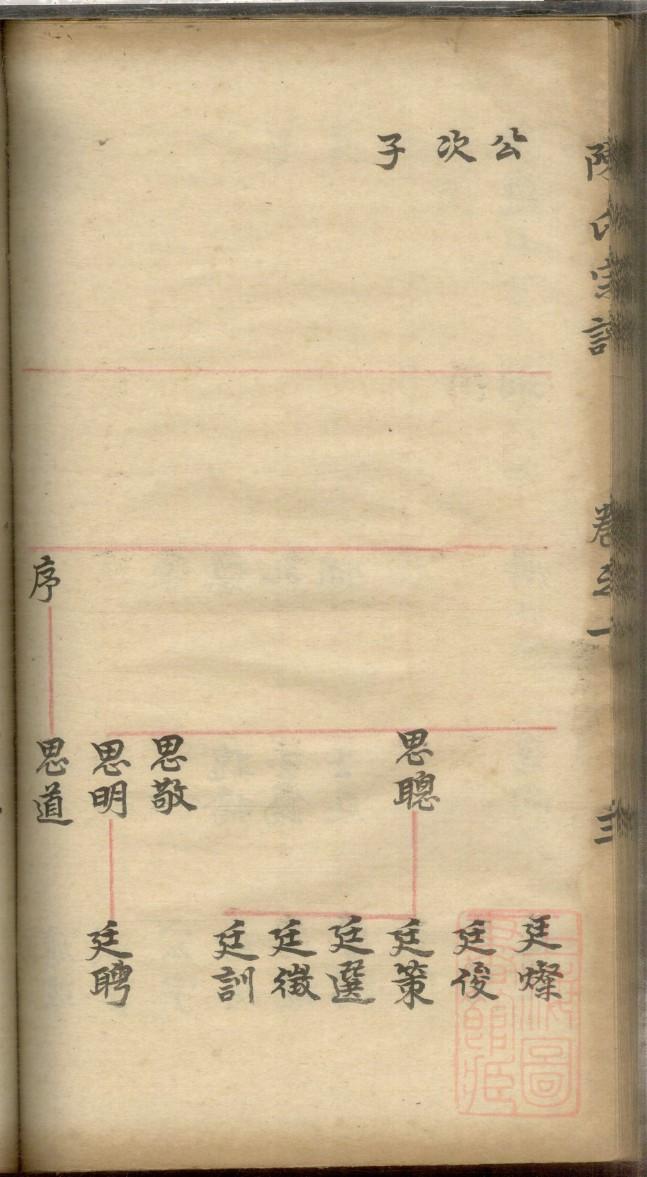 陳氏宗譜
卷之一
三
公次子
序
思聰
思敬
思明
思道
廷燦
廷俊
廷策
廷選
廷徵
廷訓
廷聘